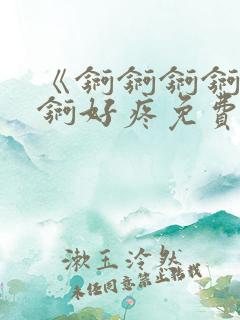 《锕锕锕锕
锕好疼免費
漱玉泠然
未经同意禁止转载